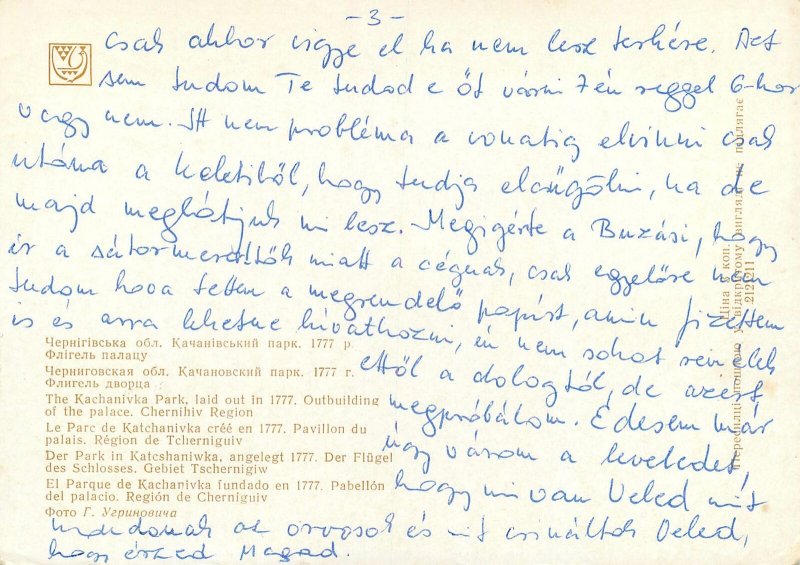 -3-
Csak akkor vigye el ha nem lesz terhére. Azt
sem tudom Te tudod e őt várni 7én reggel 6-kor
vagy nem. Itt nem probléma a vonatig elvinni csak
utána a Keletiből, hogy tudja elcsügölni, ha de
majd meglátjuk mi lesz. Megigérte a Buzási, hogy
ír a sátormerevítők miatt a cégnek, csak egyelőre nem
tudom hova tettem a megrendelő papírt, amin fizettem
is és arra lehetne hivatkozni, én nem sokat remélek
ettől a dologtól, de azért
megpróbálom. Édesem már
úgy várom a leveledet,
hogy mi van Veled mit
mondanak az orvosok és mit csináltak Veled,
hogy érzed Magad.
Чернігівська обл. Качанівський парк. 1777 р.
Флігель палацу
Черниговская обл. Качановский парк. 1777 г.
Флигель дворца
The Kachanivka Park, laid out in 1777. Outbuilding
of the palace. Chernihiv Region
Le Parc de Katchanivka créé en 1777. Pavillon du
palais. Région de Tcherniguiv
Der Park in Katcshaniwka, angelegt 1777. Der Flügel
des Schlosses. Gebiet Tschernigiw
El Parque de Kachanivka fundado en 1777. Pabellón
del palacio. Región de Cherniguiv
Фото Г. Угриновича
Ціна 5 коп.
Пересилці поштою у відкритому вигляді не підлягає